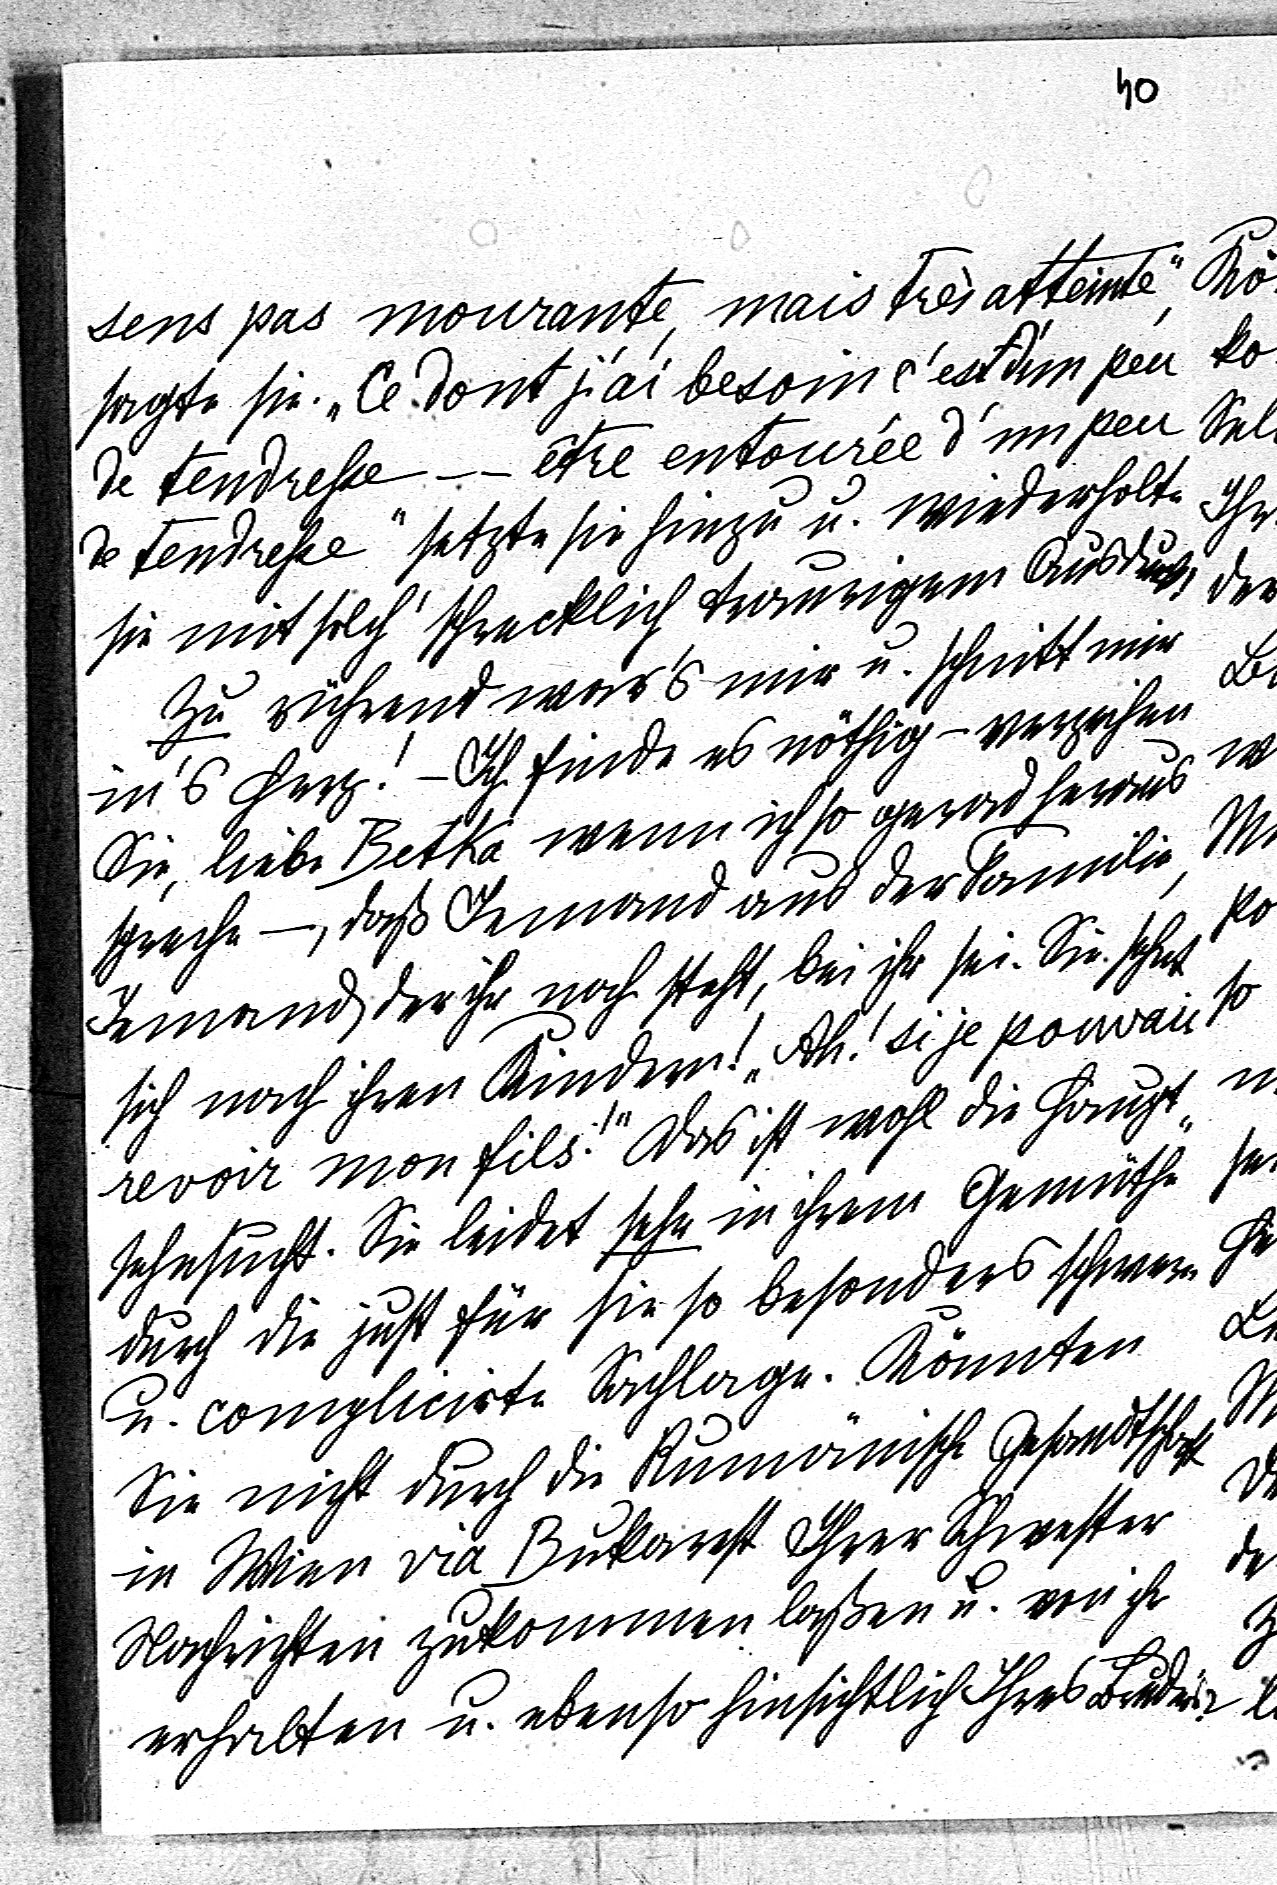 40
sens pas mourante, mais très atteinte",
sagte sie. „Ce dont j'ai besoin c'est d'un peu
de tendresse — — être entourée d'un peu
de tendresse" setzte sie hinzu u. wiederholte
sie mit solch' schrecklich traurigem Ausdruck
Zu rührend war's mir u. schnitt mir
in's Herz! – Ich finde es nöthig – verzeihen
Sie, liebe Betka wenn ich so gerad heraus
spreche –, daß Jemand aus der Familie,
Jemand, der ihr nah steht, bei ihr sei. Sie sehnt
sich nach ihren Kindern! „Ah! si je pouvais
revoir mon fils!" Das ist wohl die Haupt„
sehnsucht. Sie leidet sehr in ihrem Gemüthe
durch die just für sie so besonders schwere
u. complicirte Sachlage. Könnten
Sie nicht durch die Rumänische Gesandtschaft
in Wien via Bukarest Ihrer Schwester
Nachrichten zukommen laßen u. von ihr
erhalten u. ebenso hinsichtlich Ihres Bruders?